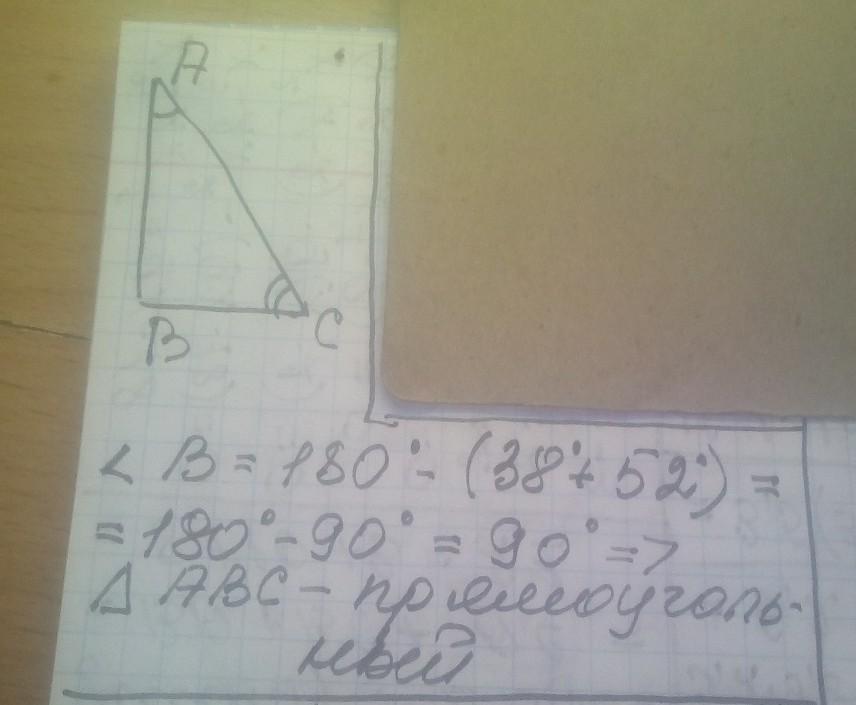 A
B
C
< B = 180° - (38° + 52°) =
= 180° - 90° = 90° =>
Δ ABC - прямоуголь-
ный